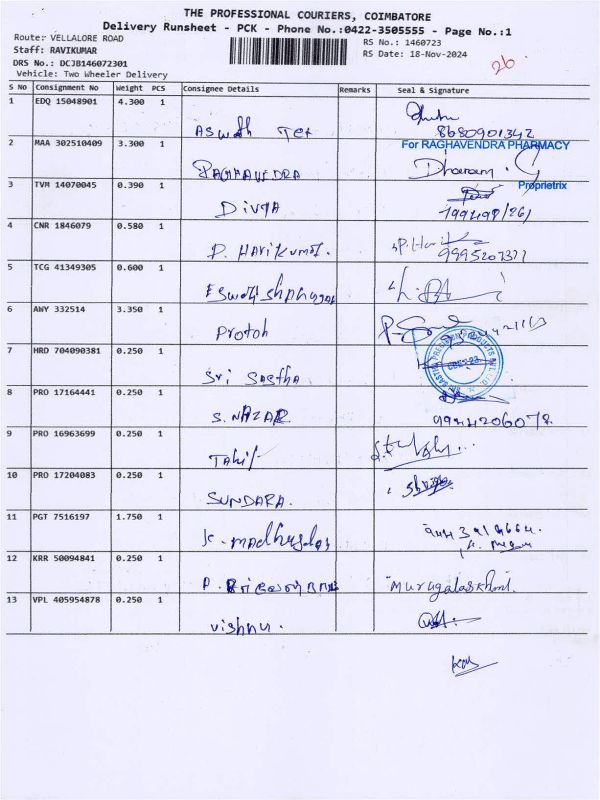 THE PROFESSIONAL COURIERS, COIMBATORE
Delivery Runsheet - PCK - Phone No.:0422-3505555 - Page No.:1
Route: VELLALORE ROAD
RS No.: 1460723
Staff: RAVIKUMAR
RS Date: 18-Nov-2024
26
DRS No.: DCJB146072301
Vehicle: Two Wheeler Delivery
S No Consignment No Weight PCS Consignee Details Remarks Seal & Signature
1 EDQ 15048901 4.300 1
Aswath Tex 8680901342
2 MAA 302510409 3.300 1 For RAGHAVENDRA PHARMACY
RAGHAVENDRA
Proprietrix
3 TVM 14070045 0.390 1
DIVYA
4 CNR 1846079 0.580 1
P. HARIKUMAR. P. Hari
9995207377
5 TCG 41349305 0.600 1
6 AWY 332514 3.350 1
Protoh
7 HRD 704090381 0.250 1
Sri Sastha
8 PRO 17164441 0.250 1
S. NAZAR 9944206078
9 PRO 16963699 0.250 1
10 PRO 17204083 0.250 1
SUNDARA.
11 PGT 7516197 1.750 1
K. madhusdas
12 KRR 50094841 0.250 1
Murugalakshmi.
13 VPL 405954878 0.250 1
vishnu.